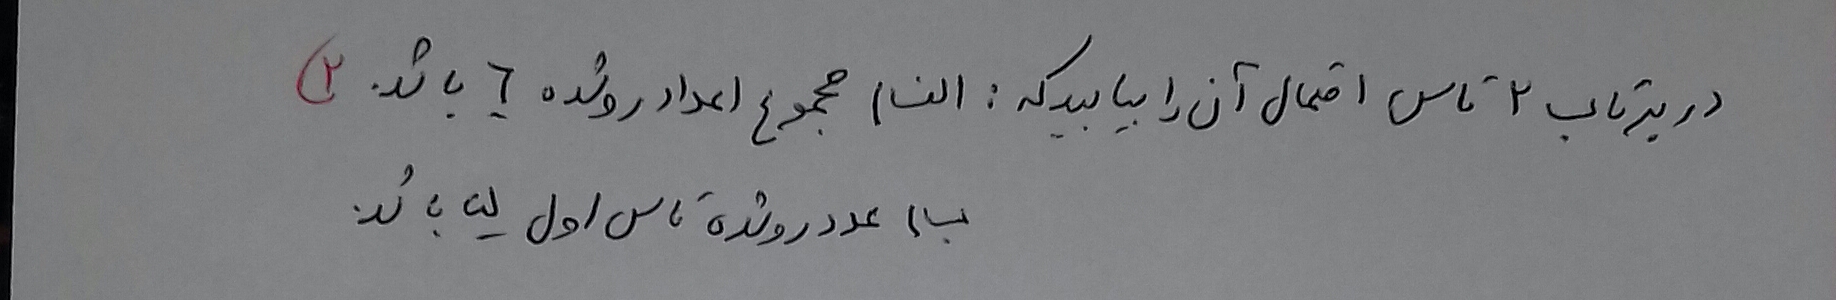 در پرتاب ۲ تاس احتمال آن را بیابید که : الف) مجموع اعداد رو شده ۶ باشد. (۲
ب) عدد رو شده تاس اول یک باشد.